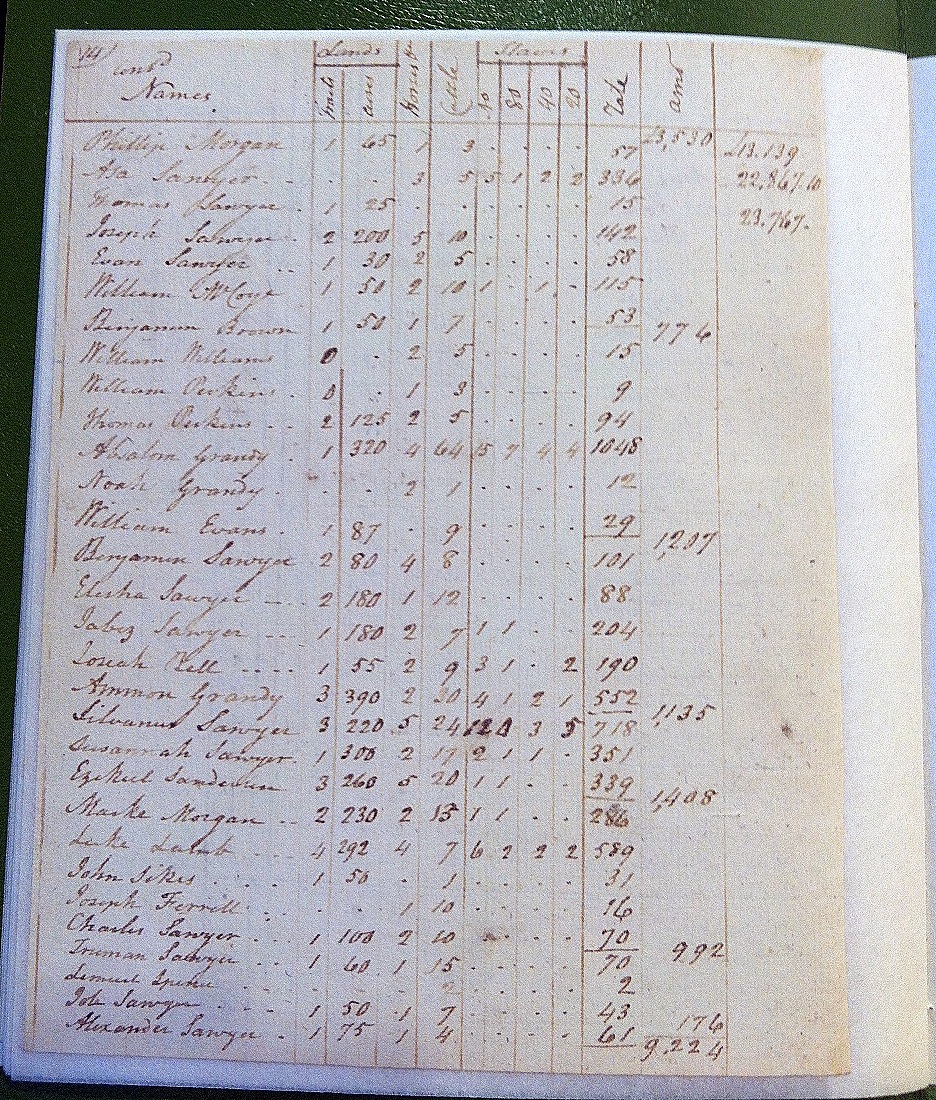 Lands Horses Cattle Slaves
Names Tracts acres 50 80 40 20 Vale amo
Phillip Morgan 1 65 1 3 . . . . 57 £3,530 £13.139
Asa Sawyer . . . . 3 5 5 1 2 2 336 22,867.10
Thomas Sawyer . 1 25 . . . . . . 15 23.767.
Joseph Sawyer . 2 200 5 10 . . . . 142
Evan Sawyer . . 1 30 2 5 . . . . 58
William McCoye 1 50 2 10 1 . 1 . 115
Benjamin Brown 1 50 1 7 . . . . 53 776
William Williams 0 . 2 5 . . . . 15
William Perkins . 0 . 1 3 . . . . 9
Thomas Perkins . . 2 125 2 5 . . . . 94
Absalom Grandy . 1 320 4 64 15 7 4 4 1048
Noah Grandy . . . 2 1 . . . . 12
William Evans . 1 87 . 9 . . . . 29 1,207
Benjamin Sawyer 2 80 4 8 . . . . 101
Elisha Sawyer 2 180 1 12 . . . . 88
Jabez Sawyer 1 180 2 7 1 1 . . 204
Josiah 1 55 2 9 3 1 . 2 190
Ammon Grandy 3 390 2 20 4 1 2 1 552 1,135
Silvanus Sawyer 3 220 5 24 3 5 718
Susannah Sawyer . 1 300 2 17 2 1 1 . 351
Ezekiel 3 260 5 20 1 1 . . 339 1,408
Marke Morgan . . 2 230 2 15 1 1 . . 286
Luke Lamb 4 292 4 7 6 2 2 2 589
John Sikes 1 50 . 1 . . . . 31
Joseph Ferrill . . 1 10 . . . . 16
Charles Sawyer 1 100 2 10 . . . 70 992
Truman Sawyer 1 60 1 15 . . . . 70
Lemuel Spence 2 . . . . 2
Job Sawyer 1 50 1 7 . . . . 43 176
Alexander Sawyer . 1 75 1 4 . . . . 61 9,224